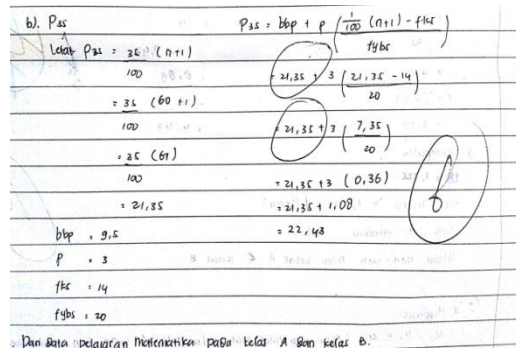 b). P35
Letak P35 = 35 (n+1)
100
= 35 (60 +1).
100
= 35 (61)
100
= 21,35
bbp = 9,5
P = 3
fks = 14
fybs = 20
P35 = bbp + p ( 1/100 (n+1) - fks
fybs )
= 21,35 + 3 ( 21,35 - 14
20 )
= 21,35 + 3 ( 7,35
20 )
= 21,35 + 3 ( 0,36 )
= 21,35 + 1,08
= 22,43
Dari data pelajaran matematika pada kelas A dan kelas B.